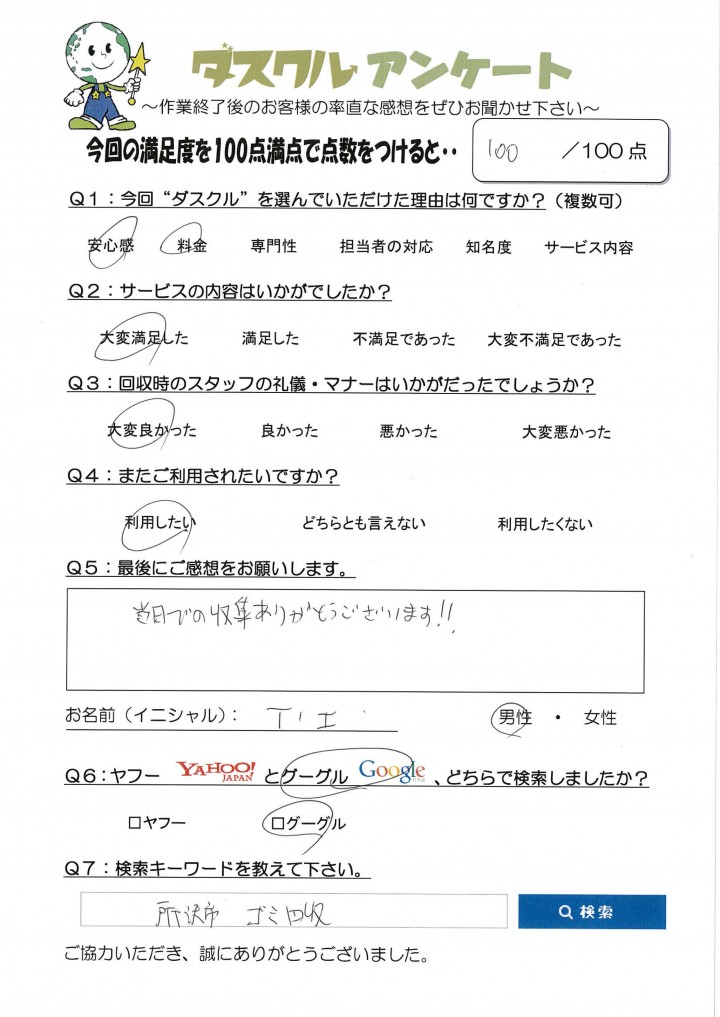 ダスクル アンケート
～作業終了後のお客様の率直な感想をぜひお聞かせ下さい～
今回の満足度を100点満点で点数をつけると・・ 100 /100点
Q1：今回“ダスクル”を選んでいただけた理由は何ですか？（複数可）
安心感 料金 専門性 担当者の対応 知名度 サービス内容
Q2：サービスの内容はいかがでしたか？
大変満足した 満足した 不満足であった 大変不満足であった
Q3：回収時のスタッフの礼儀・マナーはいかがだったでしょうか？
大変良かった 良かった 悪かった 大変悪かった
Q4：またご利用されたいですか？
利用したい どちらとも言えない 利用したくない
Q5：最後にご感想をお願いします。
当日での収集ありがとうございます!!
お名前（イニシャル）： T・I 男性 ・ 女性
Q6：ヤフー YAHOO! JAPAN とグーグル Google 、どちらで検索しましたか？
□ヤフー □グーグル
Q7：検索キーワードを教えて下さい。
所沢市 ゴミ回収 検索
ご協力いただき、誠にありがとうございました。